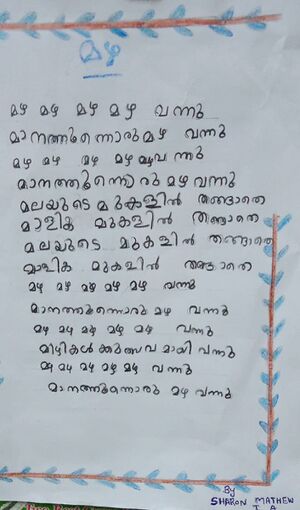 മഴ
മഴ മഴ മഴ മഴ വന്നു
മാനത്തുന്നൊരു മഴ വന്നു
മഴ മഴ മഴ മഴ മഴവന്നു
മാനത്തുന്നൊരു മഴ വന്നു
മലയുടെ മുകളിൽ തങ്ങാതെ
മാളിക മുകളിൽ തങ്ങാതെ
മലയുടെ മുകളിൽ തങ്ങാതെ
മാളിക മുകളിൽ തങ്ങാതെ
മഴ മഴ മഴ മഴ മഴ വന്നു
മാനത്തുന്നൊരു മഴ വന്നു
മഴ മഴ മഴ മഴ മഴ വന്നു
മിഴികൾക്കുത്സവമായി വന്നു
മഴ മഴ മഴ മഴ മഴ വന്നു
മാനത്തുന്നൊരു മഴ വന്നു
By
SHARON MATHEW